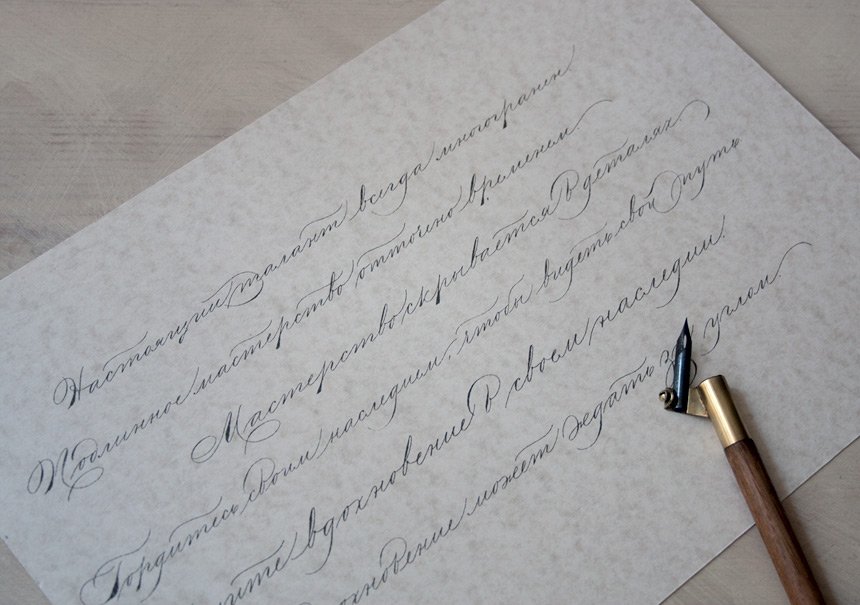 Настоящий талант всегда многогранен
Подлинное мастерство отточено временем
Мастерство скрывается в деталях
Гордитесь своим наследием, чтобы видеть свой путь
вдохновение в своем наследии.
может ждать за углом.